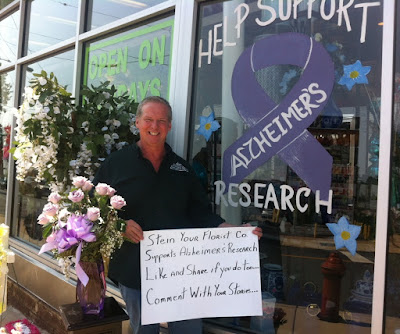 OPEN ON
HELP SUPPORT
ALZHEIMER'S
RESEARCH
Stein Your Florist Co.
Supports Alzheimers Research
Like and Share if you do too-
Comment With Your Stories...